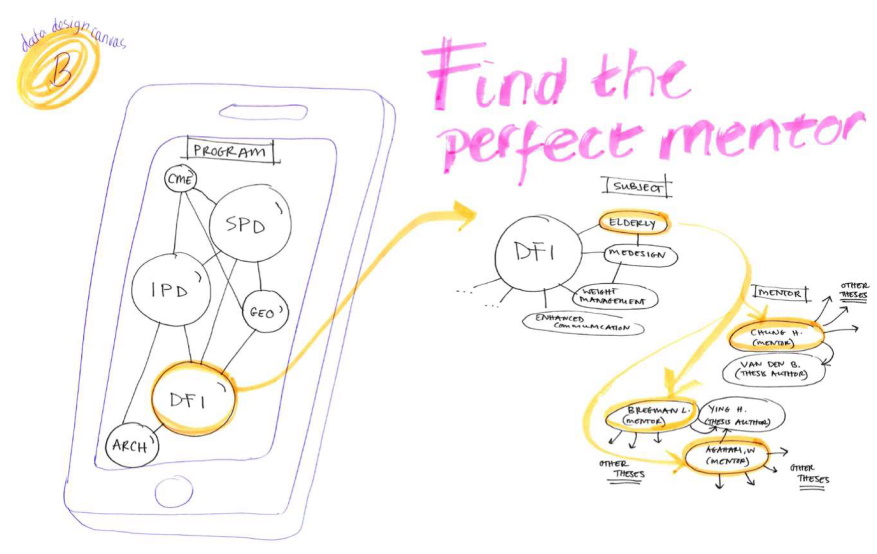 data design canvas
B
Find the
perfect mentor
PROGRAM
CME
SPD
IPD
GEO
DFI
ARCH
SUBJECT
DFI
ELDERLY
MEDESIGN
WEIGHT
MANAGEMENT
ENHANCED
COMMUNICATION
MENTOR
OTHER
THESES
CHUNG H.
(MENTOR)
VAN DEN B.
(THESIS AUTHOR)
BREGMAN L.
(MENTOR)
YING H.
(THESIS AUTHOR)
AGAHARI, W
(MENTOR)
OTHER
THESES
OTHER
THESES